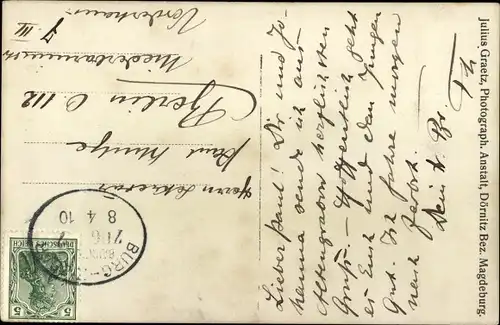 Lieber Paul! Dir und Jo-
hanna sende ich aus
Altengrabow herzlichsten
Gruß. – Hoffentlich geht
es Euch und dem Jungen
gut. Ich fahre morgen
nach Zerbst.
Dein tr. Br.
Herrn Sekretär
Paul
Berlin O. 112
Niederbarnim
7 III
Vorderhaus
Julius Graetz, Photograph. Anstalt, Dörnitz Bez. Magdeburg.
BURG
ZUG
8 4 10
DEUTSCHES REICH
5 5